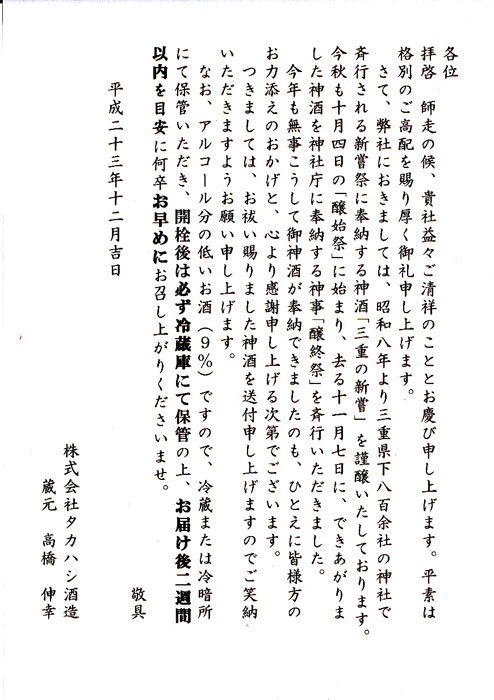 各位
拝啓　師走の候、貴社益々ご清祥のこととお慶び申し上げます。平素は
格別のご高配を賜り厚く御礼申し上げます。
さて、弊社におきましては、昭和八年より三重県下八百余社の神社で
斉行される新嘗祭に奉納する神酒「三重の新嘗」を謹醸いたしております。
今秋も十月四日の「醸始祭」に始まり、去る十一月七日に、できあがりま
した神酒を神社庁に奉納する神事「醸終祭」を斉行いただきました。
今年も無事こうして御神酒が奉納できましたのも、ひとえに皆様方の
お力添えのおかげと、心より感謝申し上げる次第でございます。
つきましては、お祓い賜りました神酒を送付申し上げますのでご笑納
いただきますようお願い申し上げます。
なお、アルコール分の低いお酒（9％）ですので、冷蔵または冷暗所
にて保管いただき、開栓後は必ず冷蔵庫にて保管の上、お届け後二週間
以内を目安に何卒お早めにお召し上がりくださいませ。
敬具
平成二十三年十二月吉日
株式会社タカハシ酒造
蔵元　高橋　伸幸